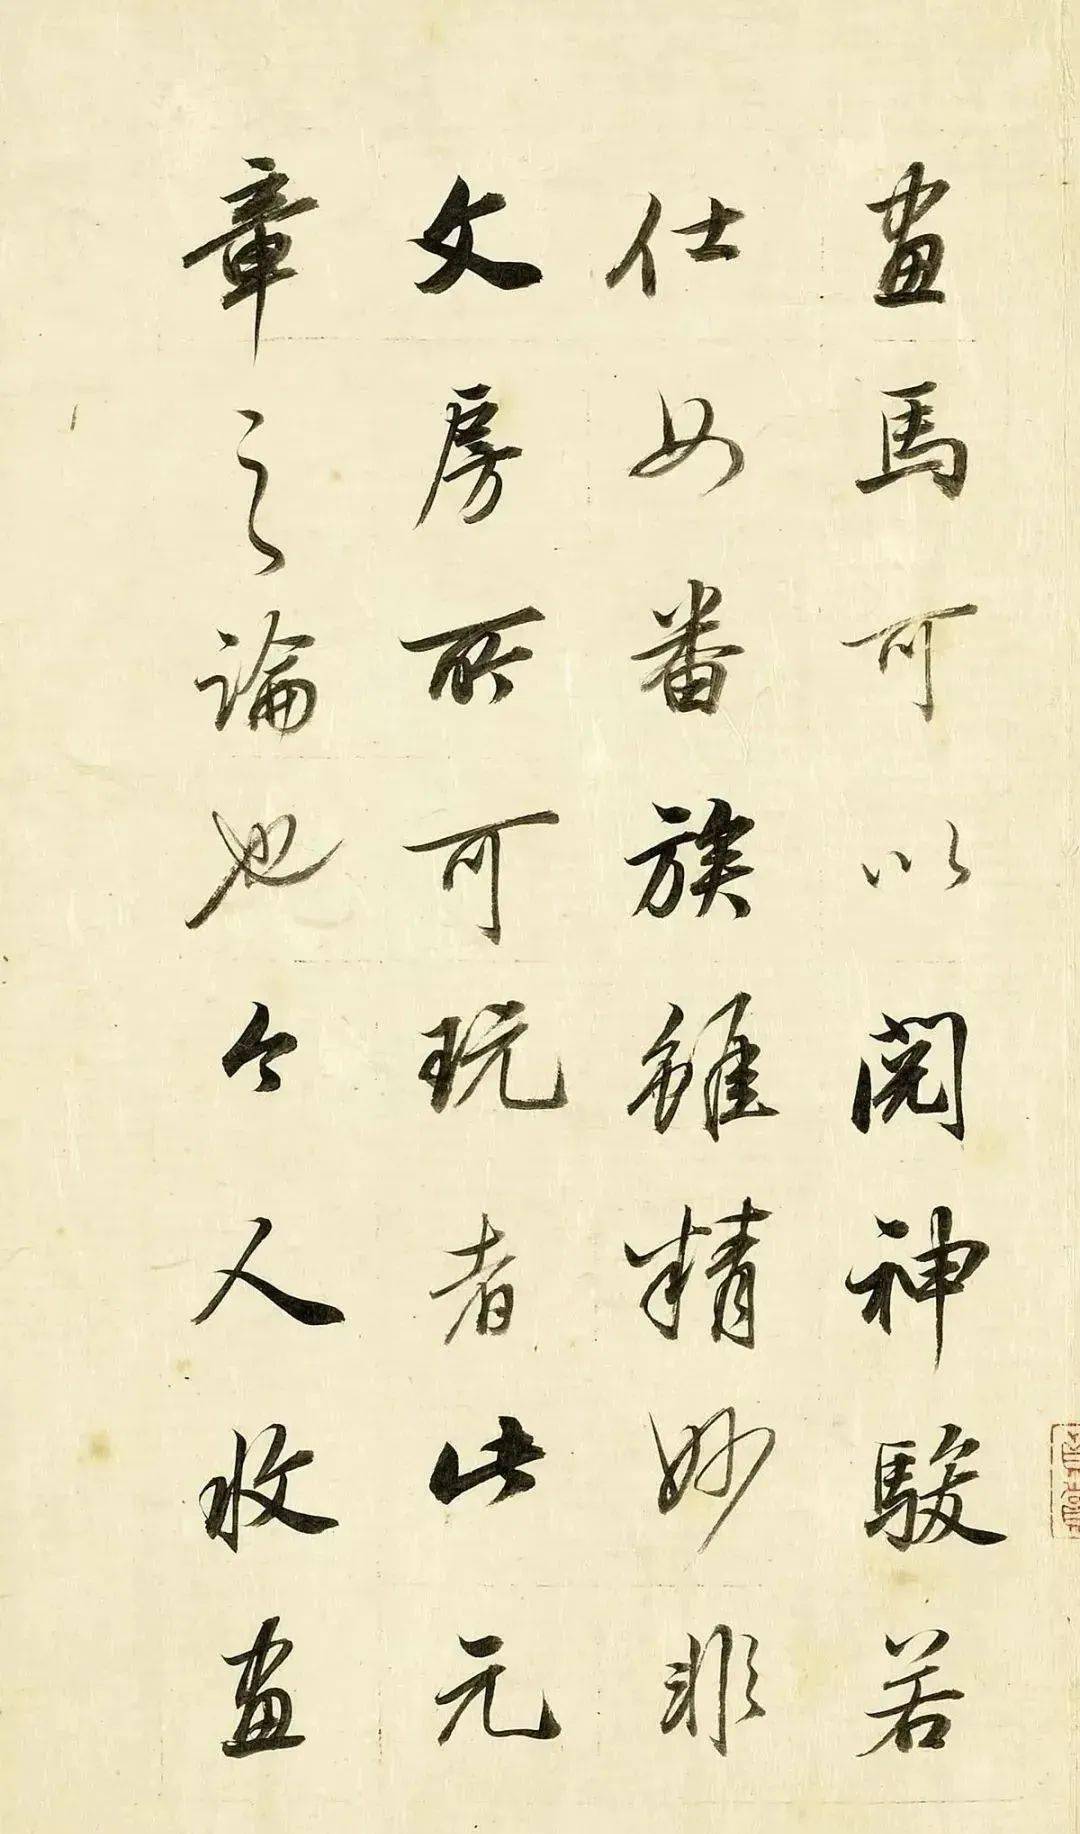 畫馬可以閱神駿若
仕女番族雖精妙非
文房所可玩者此元
章之論也今人收畫